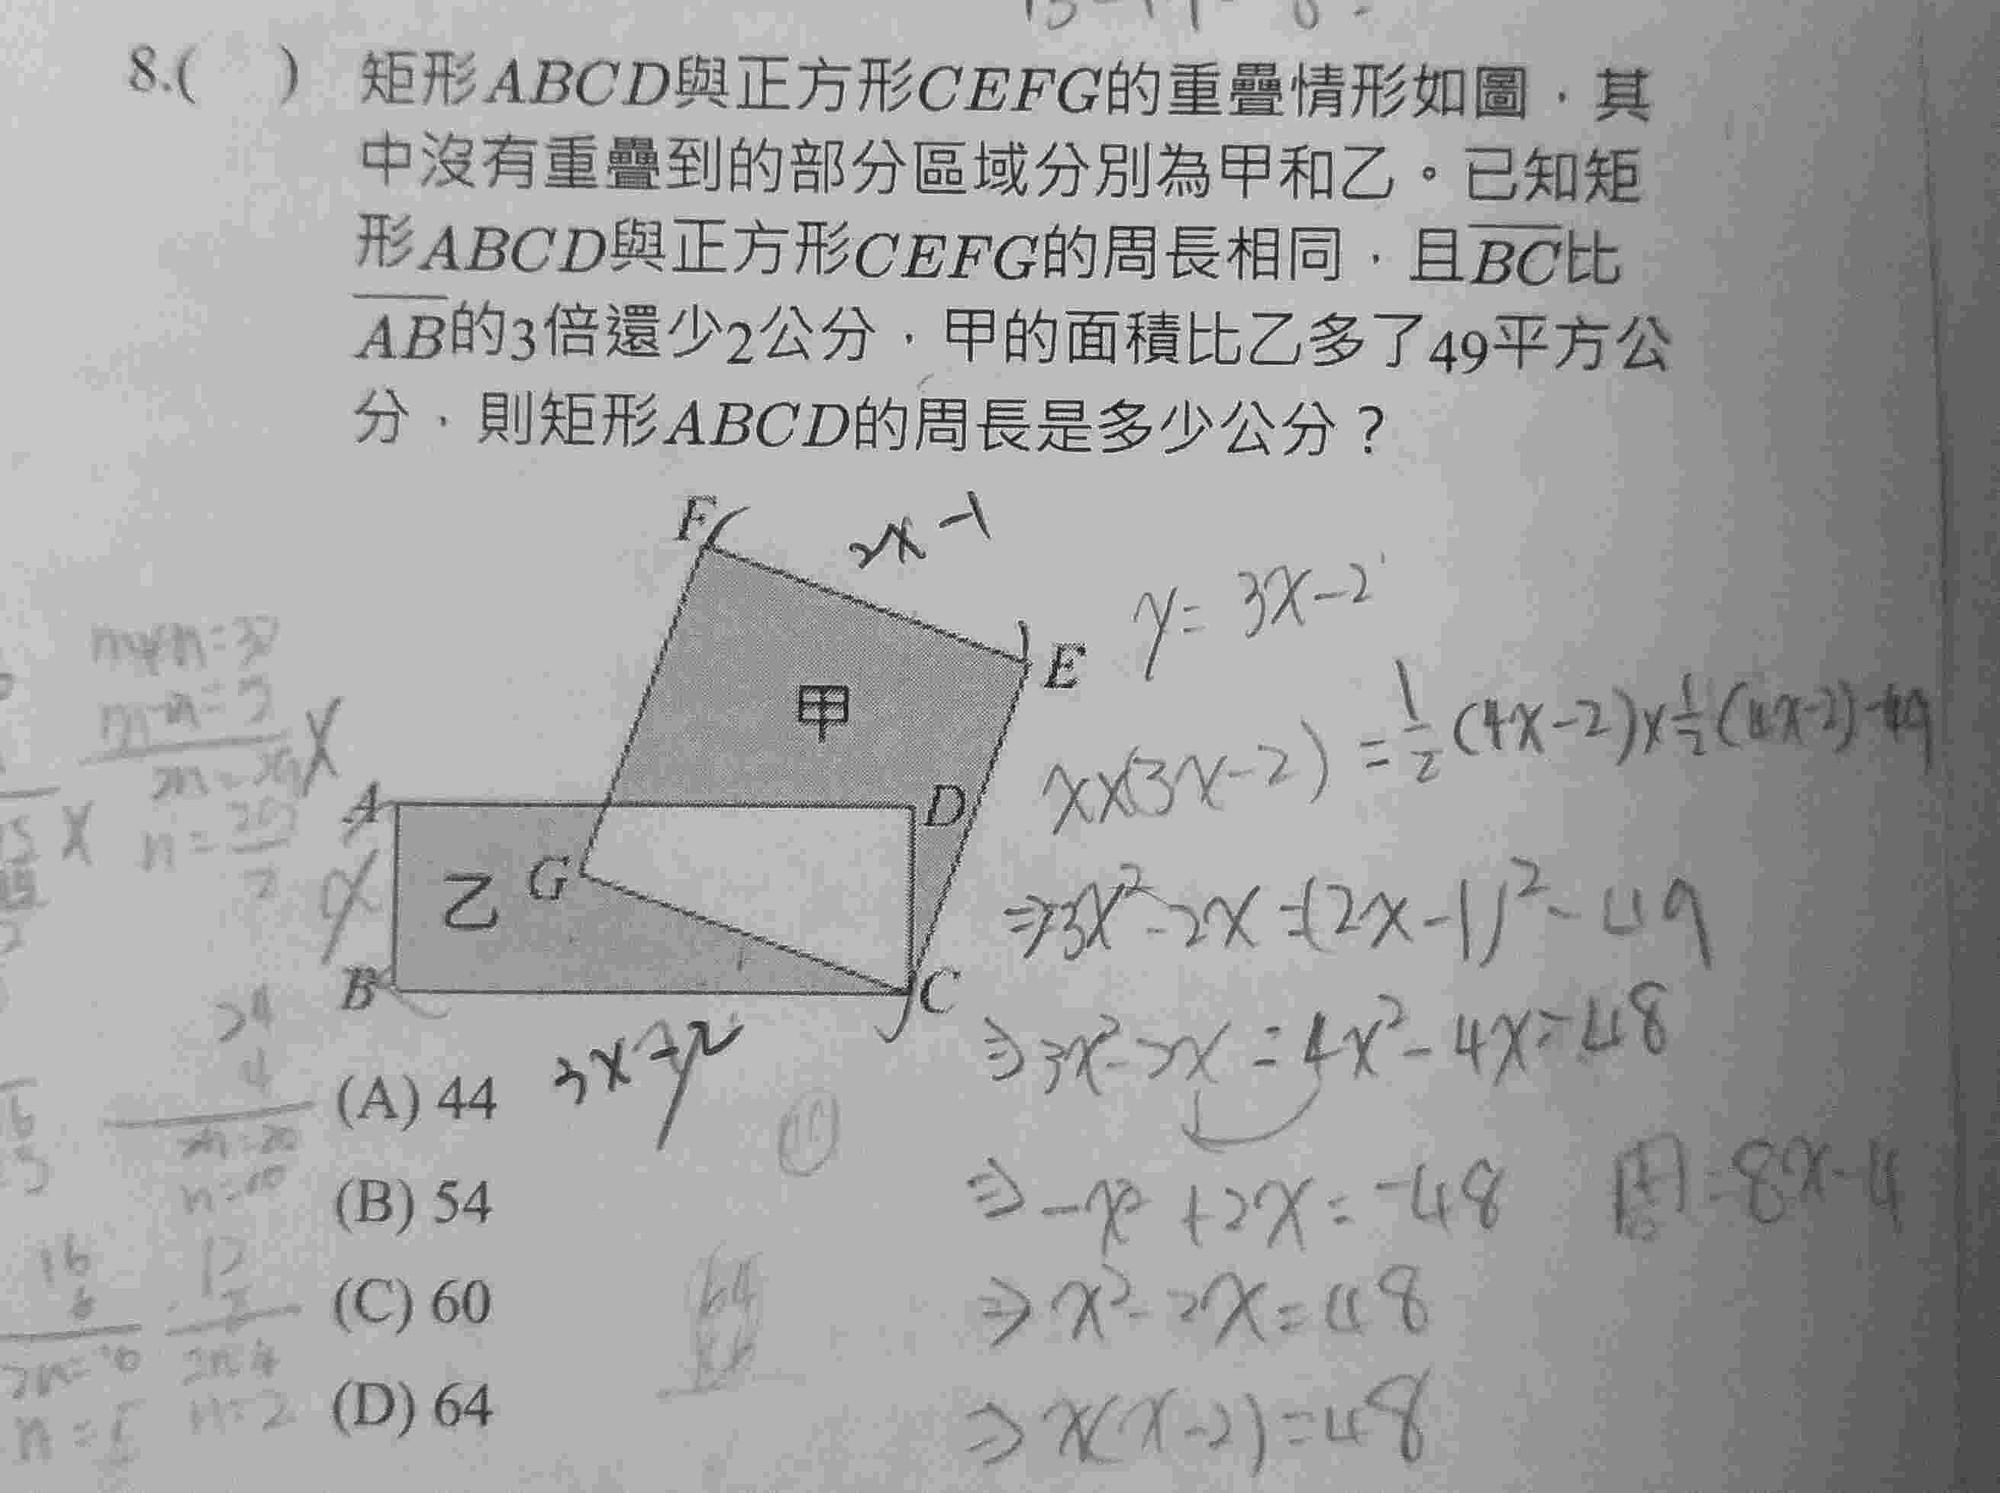 8.( ) 矩形ABCD與正方形CEFG的重疊情形如圖，其
中沒有重疊到的部分區域分別為甲和乙。已知矩
形ABCD與正方形CEFG的周長相同，且BC比
AB的3倍還少2公分，甲的面積比乙多了49平方公
分，則矩形ABCD的周長是多少公分？
F
2x-1
E
y=3x-2
甲
x×(3x-2)=1/2(4x-2)×1/2(4x-2)-49
A
D
乙
G
⇒3x²-2x=(2x-1)²-49
B
C
3x-2
⇒3x²-2x=4x²-4x=48
(A) 44
⇒-x²+2x=-48
=8x-4
(B) 54
(C) 60
⇒x²-2x=48
(D) 64
⇒x(x-2)=48